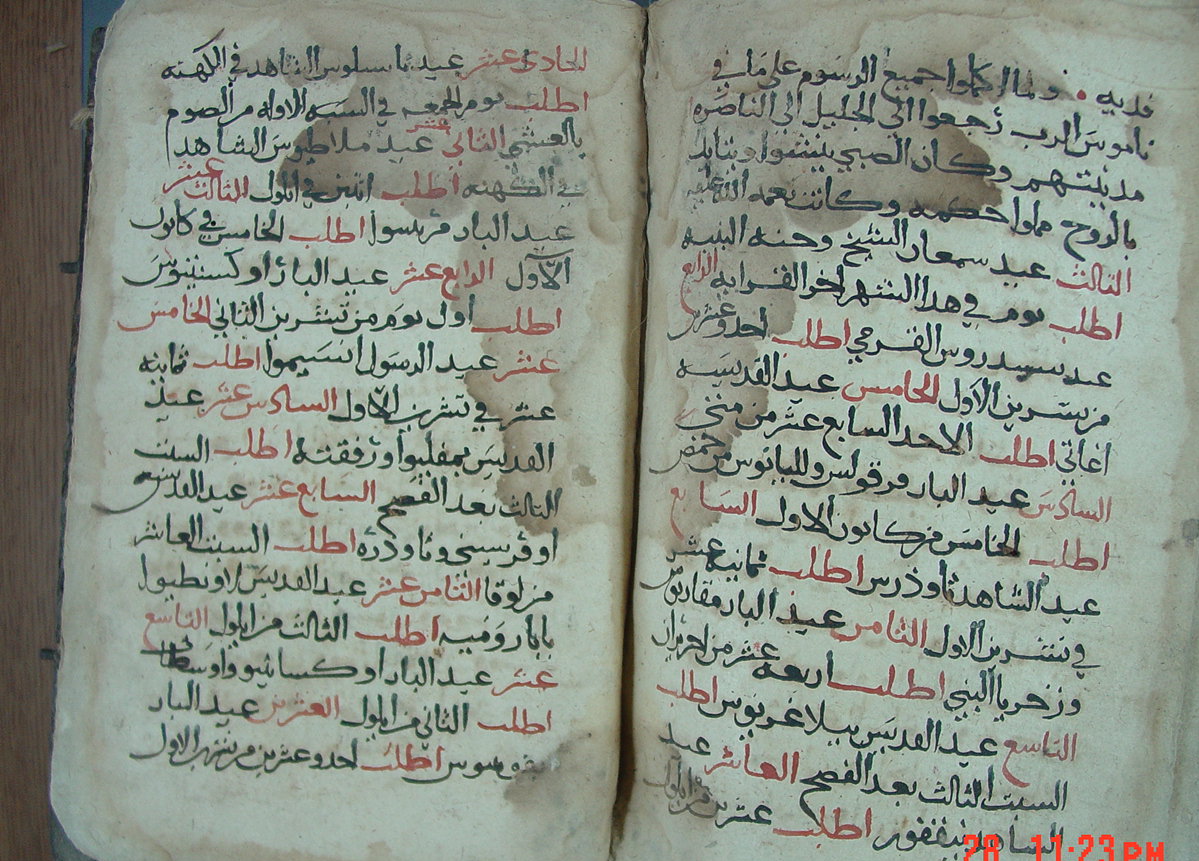 فديه ولما اكملوا جميع الرسوم على ما في
ناموس الرب رجعوا الى الجليل الى الناصره
مدينتهم وكان الصبي ينشوا ويتايد
بالروح مملوا حكمه وكانت نعمه الله عليه
الثالث عيد سمعان الشيخ وحنه النبيه
اطلب يوم في هدا الشهر اخر القرايه الرابع
عيد القرمي اطلب احد وعشرين
من تشرين الاول الخامس عيد القديسه
اغاتي اطلب الاحد السابع عشر من متى
السادس عيد البار وللبانوس من حمص
اطلب الخامس من كانون الاول السابع
عيد الشاهد تاودرس اطلب ثمانيه عشر
في تشرين الاول الثامن عيد البار
وزخريا النبي اطلب اربعه عشر من احزيران
التاسع عيد القديس بيلاغريوس اطلب
السبت الثالث بعد الفصح العاشر عيد
الشاهد نيقفور اطلب عشرين من ايلول
الحادي عشر عيد تاسيلوس الشاهد في الكهنه
اطلب يوم الجمعه في السبه الاوله من الصوم
بالعشي الثاني عشر عيد ملاطيوس الشاهد
في الكهنه اطلب اتنين في ايلول الثالث عشر
عيد البار اطلب الخامس في كانون
الاول الرابع عشر عيد البار اوكسنتيوس
اطلب اول يوم من تشرين الثاني الخامس
عشر عيد الرسول انسيموا اطلب ثمانيه
عشر في تشرين الاول السادس عشر عيد
القديس بمفليوا ورفقته اطلب السبت
الثالث بعد الفصح السابع عشر عيد القديس
وتاودره اطلب السبت العاشر
من لوقا الثامن عشر عيد القديس لاونطيوا
بابا روميه اطلب الثالث من ايلول التاسع
عشر عيد البار اوكسانيو واوسطاتي
اطلب الثاني من ايلول العشرين عيد البار
اطلب احد وعشرين من تشرين الاول
28 11:23 PM